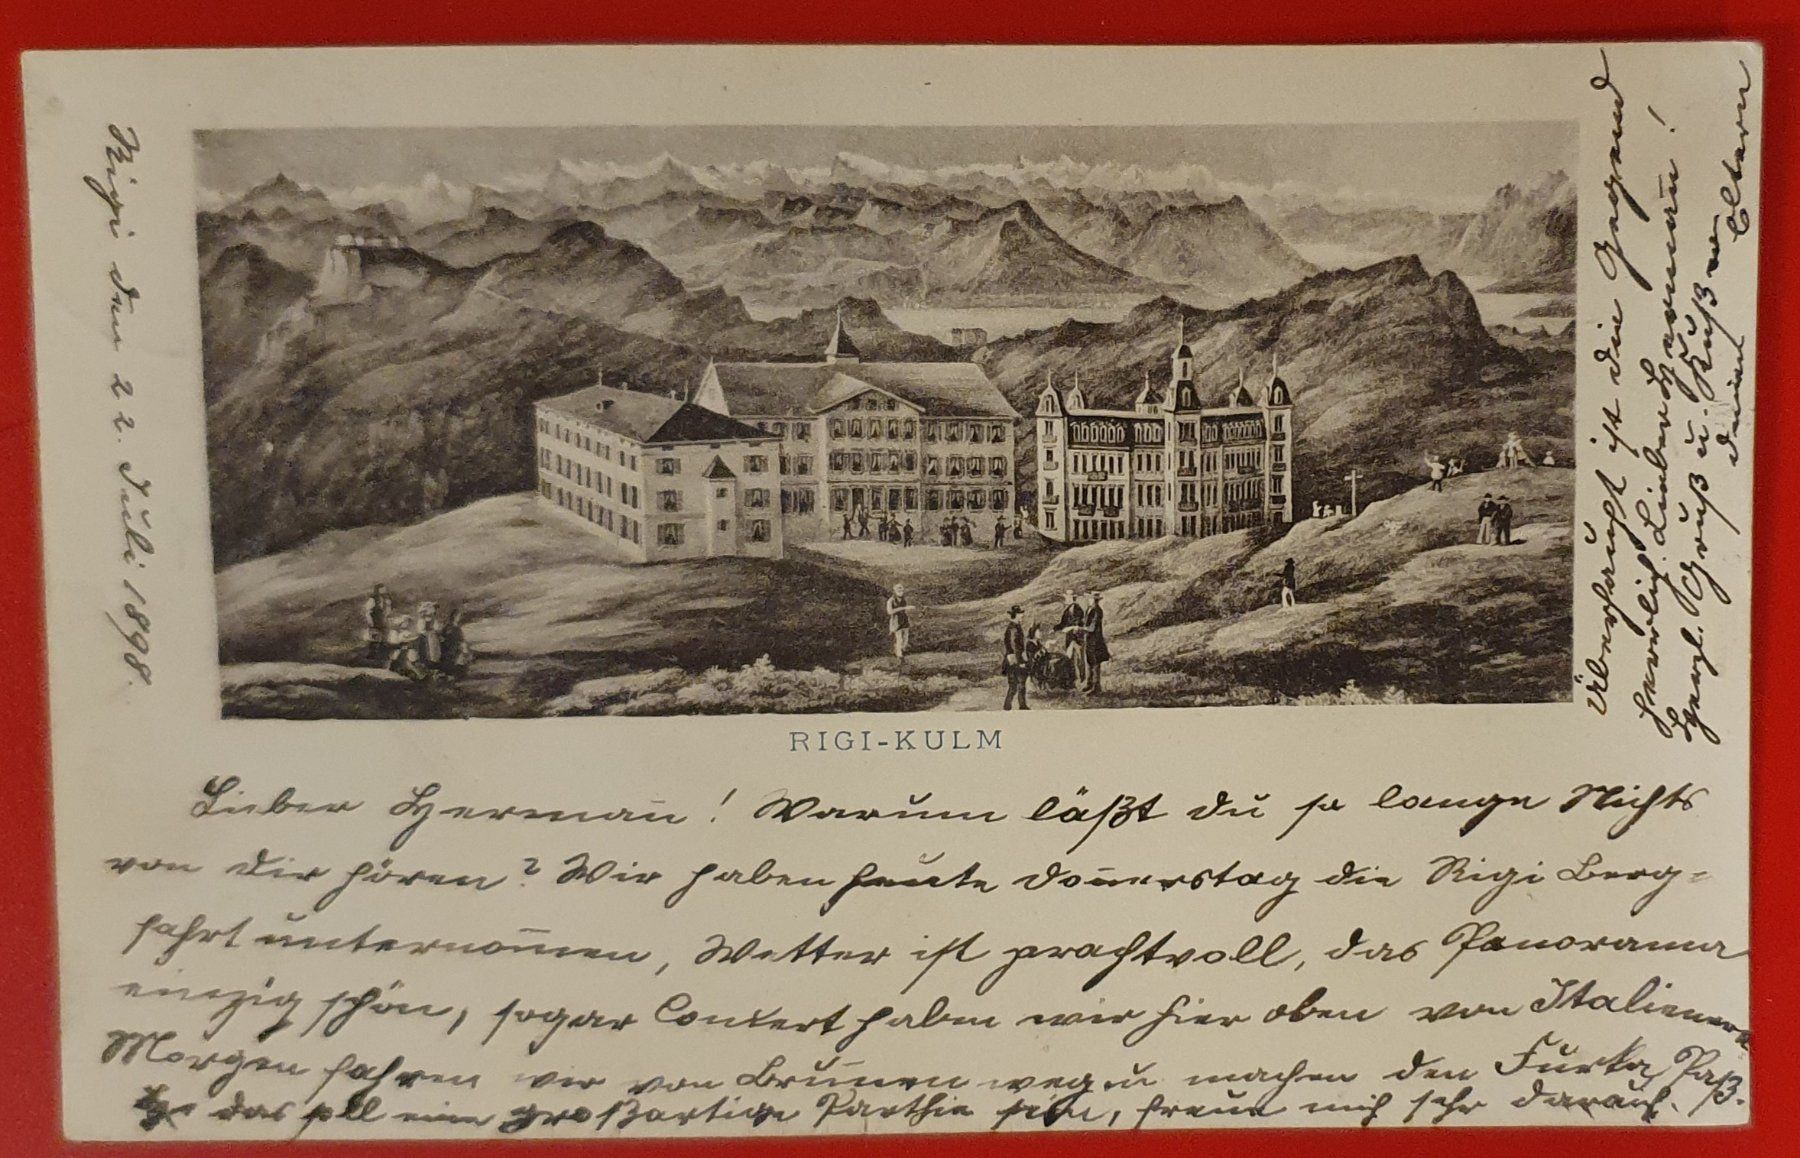 Rigi den 22. Juli 1898.
RIGI-KULM
Lieber Hermañ! Warum läßt du so lange Nichts
von dir hören? Wir haben heute Doñerstag die Rigi Berg-
fahrt unternom̄en, Wetter ist prachtvoll, das Panorama
einzig schön, sogar Concert haben wir hier oben von Italienern
Morgen fahren wir von Bruñen weg u machen den Furka Paß.
das soll eine großartige Parthie sein, freue mich sehr darauf.
Überhaupt ist die Gegend
herrlich. Lieber Hermañ!
Herzl. Gruß u. Kuß von
deinen Eltern